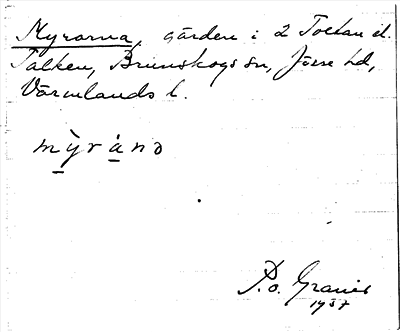 Myrarna, gården i 2 Toltan el.
Talken, Brunskogs sn, Jösse hd,
Värmlands l.
mỳránɔ
P.o. Granér
1937